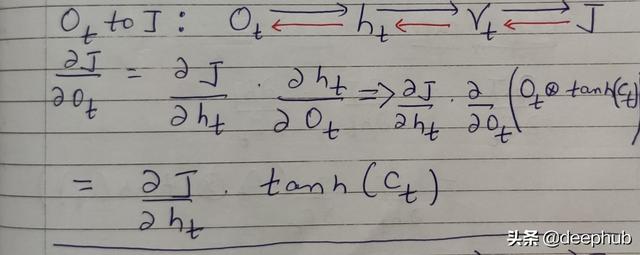 O_t to J : O_t ⇄ h_t ⇄ V_t ⇄ J
∂J/∂O_t = ∂J/∂h_t · ∂h_t/∂O_t => ∂J/∂h_t · ∂/∂O_t (O_t ⊗ tanh(C_t)
= ∂J/∂h_t · tanh(C_t)
头条 @deephub